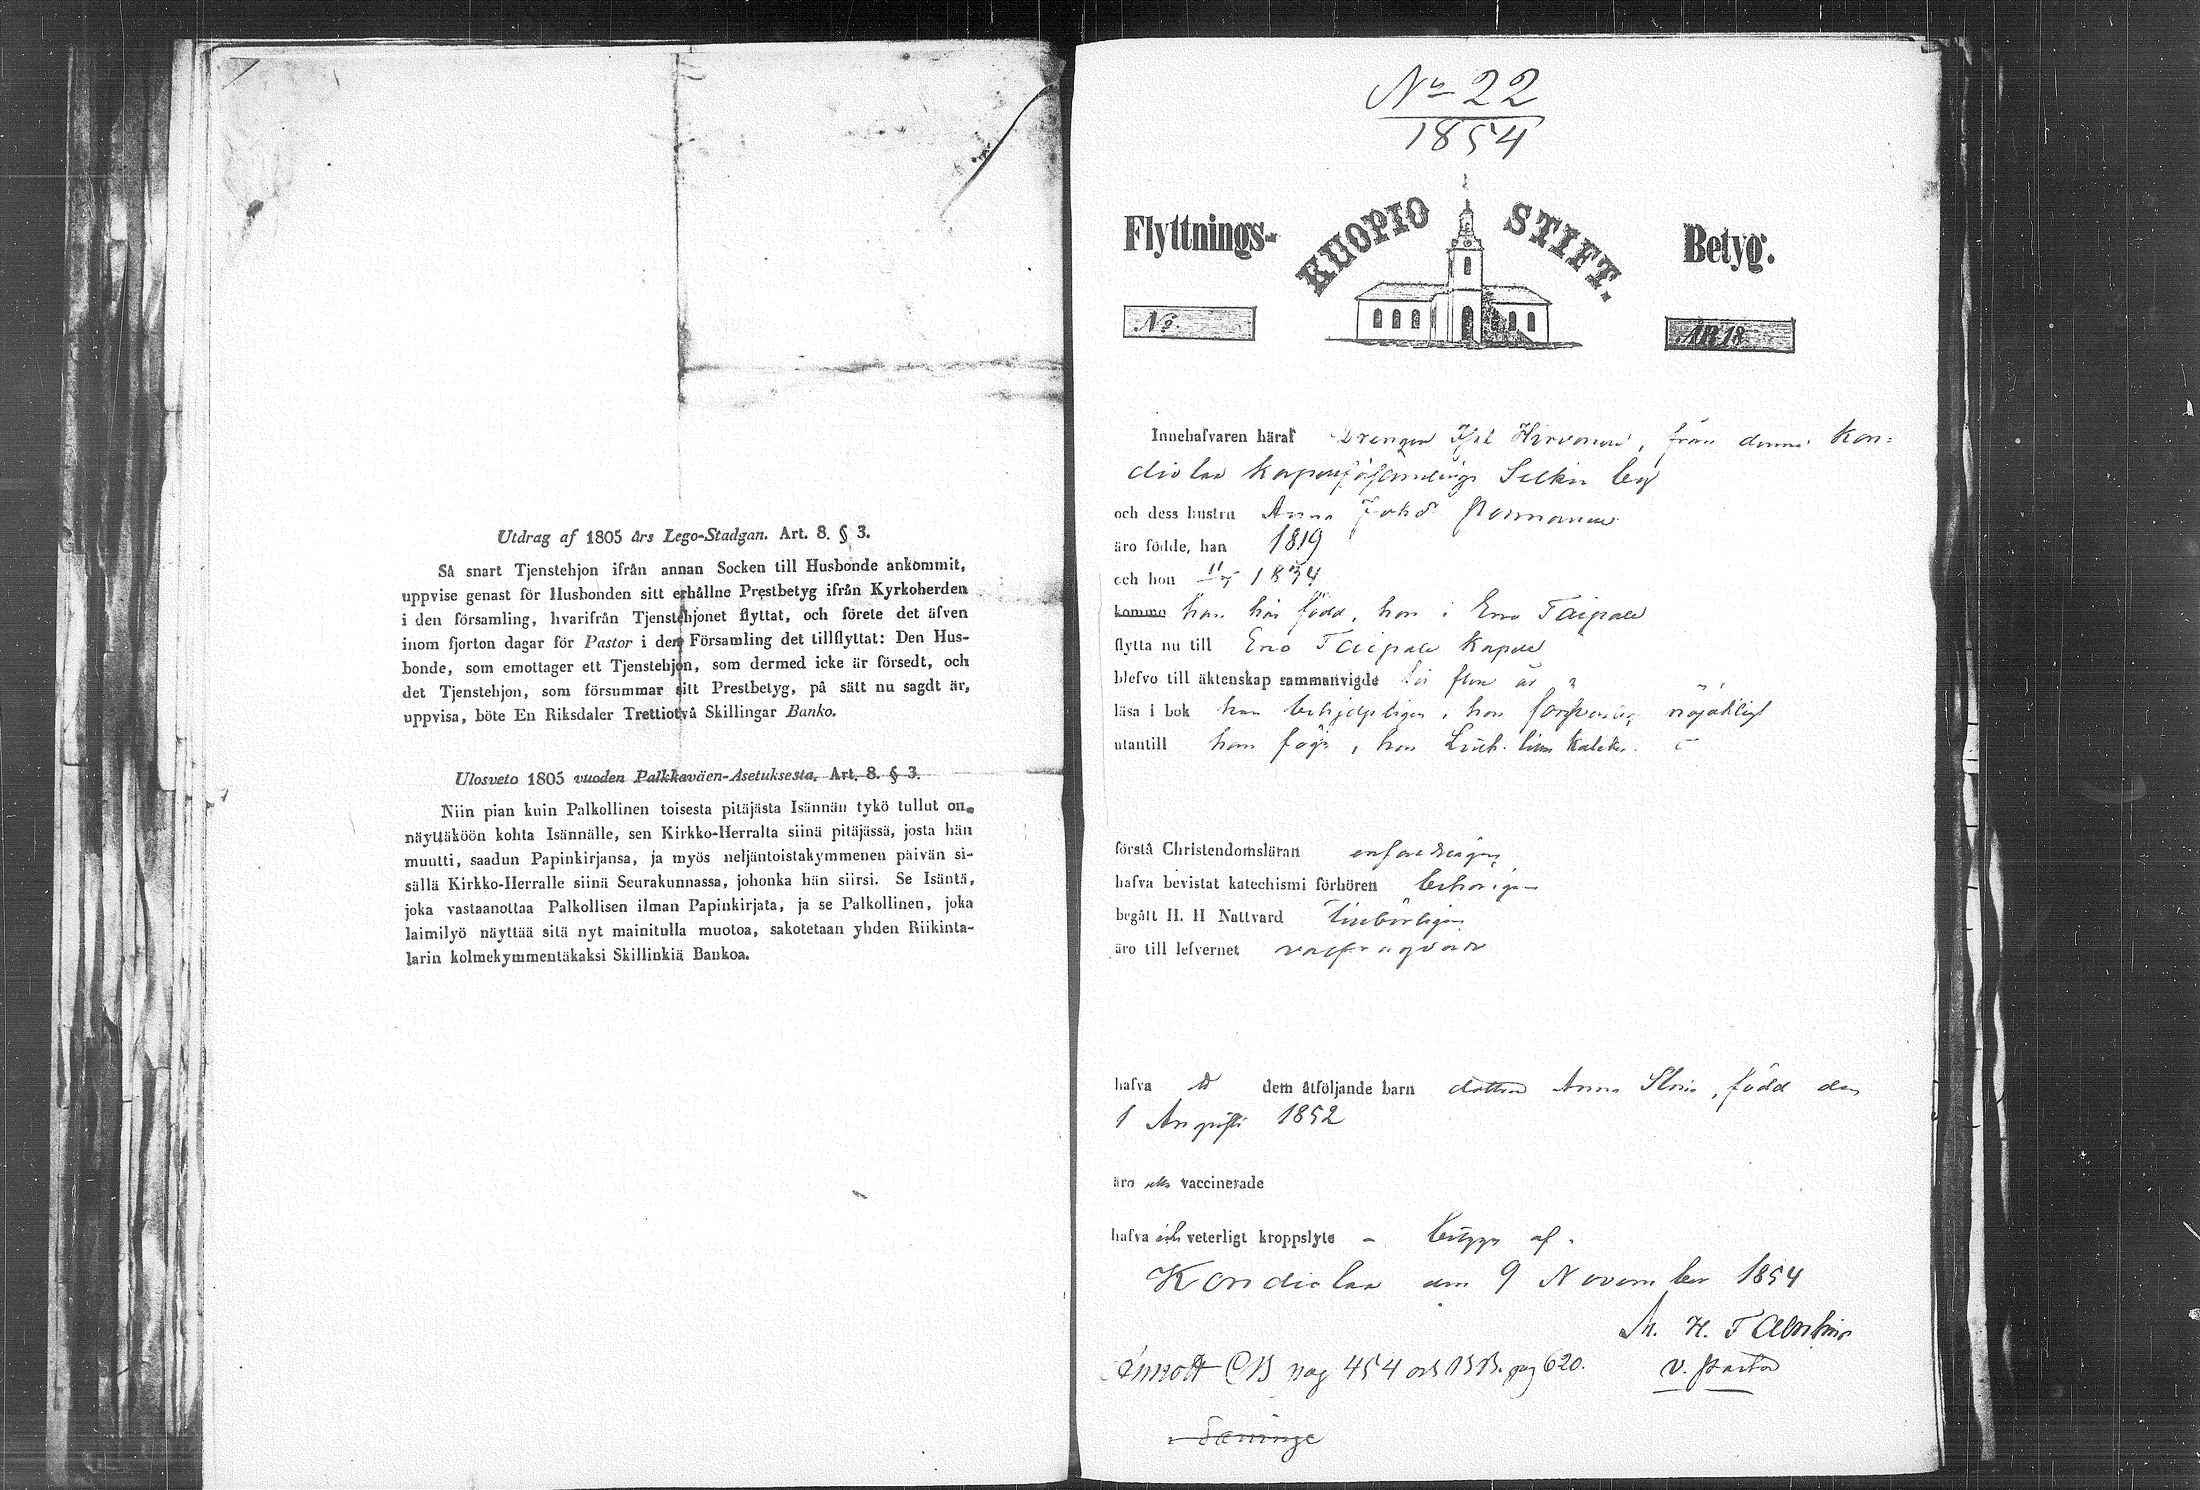 Utdrag af 1805 års Lego-Stadgan. Art. 8. § 3.
Så snart Tjenstehjon ifrån annan Socken till Husbonde ankommit,
uppvise genast för Husbonden sitt erhållne Prestbetyg ifrån Kyrkoherden
i den församling, hvarifrån Tjenstehjonet flyttat, och förete det äfven
inom fjorton dagar för Pastor i den Församling det tillflyttat: Den Hus-
bonde, som emottager ett Tjenstehjon, som dermed icke är försedt, och
det Tjenstehjon, som försummar sitt Prestbetyg, på sätt nu sagdt är,
uppvisa, böte En Riksdaler Trettiotvå Skillingar Banko.
Ulosveto 1805 vuoden Palkkaväen-Asetuksesta. Art. 8. § 3.
Niin pian kuin Palkollinen toisesta pitäjästä Isännän tykö tullut on,
näyttäköön kohta Isännälle, sen Kirkko-Herralta siinä pitäjässä, josta hän
muutti, saadun Papinkirjansa, ja myös neljäntoistakymmenen päivän si-
sällä Kirkko-Herralle siinä Seurakunnassa, johonka hän siirsi. Se Isäntä,
joka vastaanottaa Palkollisen ilman Papinkirjata, ja se Palkollinen, joka
laimilyö näyttää sitä nyt mainitulla muotoa, sakotetaan yhden Riikinta-
larin kolmekymmentäkaksi Skillinkiä Bankoa.
No 22
1854
Flyttnings- KUOPIO STIFT. Betyg.
No. ÅR 18
Innehafvaren häraf Drengen Hirvonen, från denna Kon-
diolax Selkie by
och dess hustru Anna Johsdr
äro födde, han 1819
och hon 1834
komma han här född, hon i Eno Taipale
flytta nu till Eno Taipale Kapell
blefvo till äktenskap sammanvigde för flera år
läsa i bok han behjelpligen, hon nöjaktligt
utantill han , hon Luth.
förstå Christendomsläran enfaldeligen
hafva bevistat katechismi förhören behörigen
begått H. H Nattvard tillbörligen
äro till lefvernet välfrägdade
hafva dem åtföljande barn dottren Anna , född den
1 Augusti 1852
äro alla vaccinerade
hafva veterligt kroppslyte - betygas af.
Kondiolax den 9 November 1854
H.
CB pag 454 och pag 620. V. Pastor